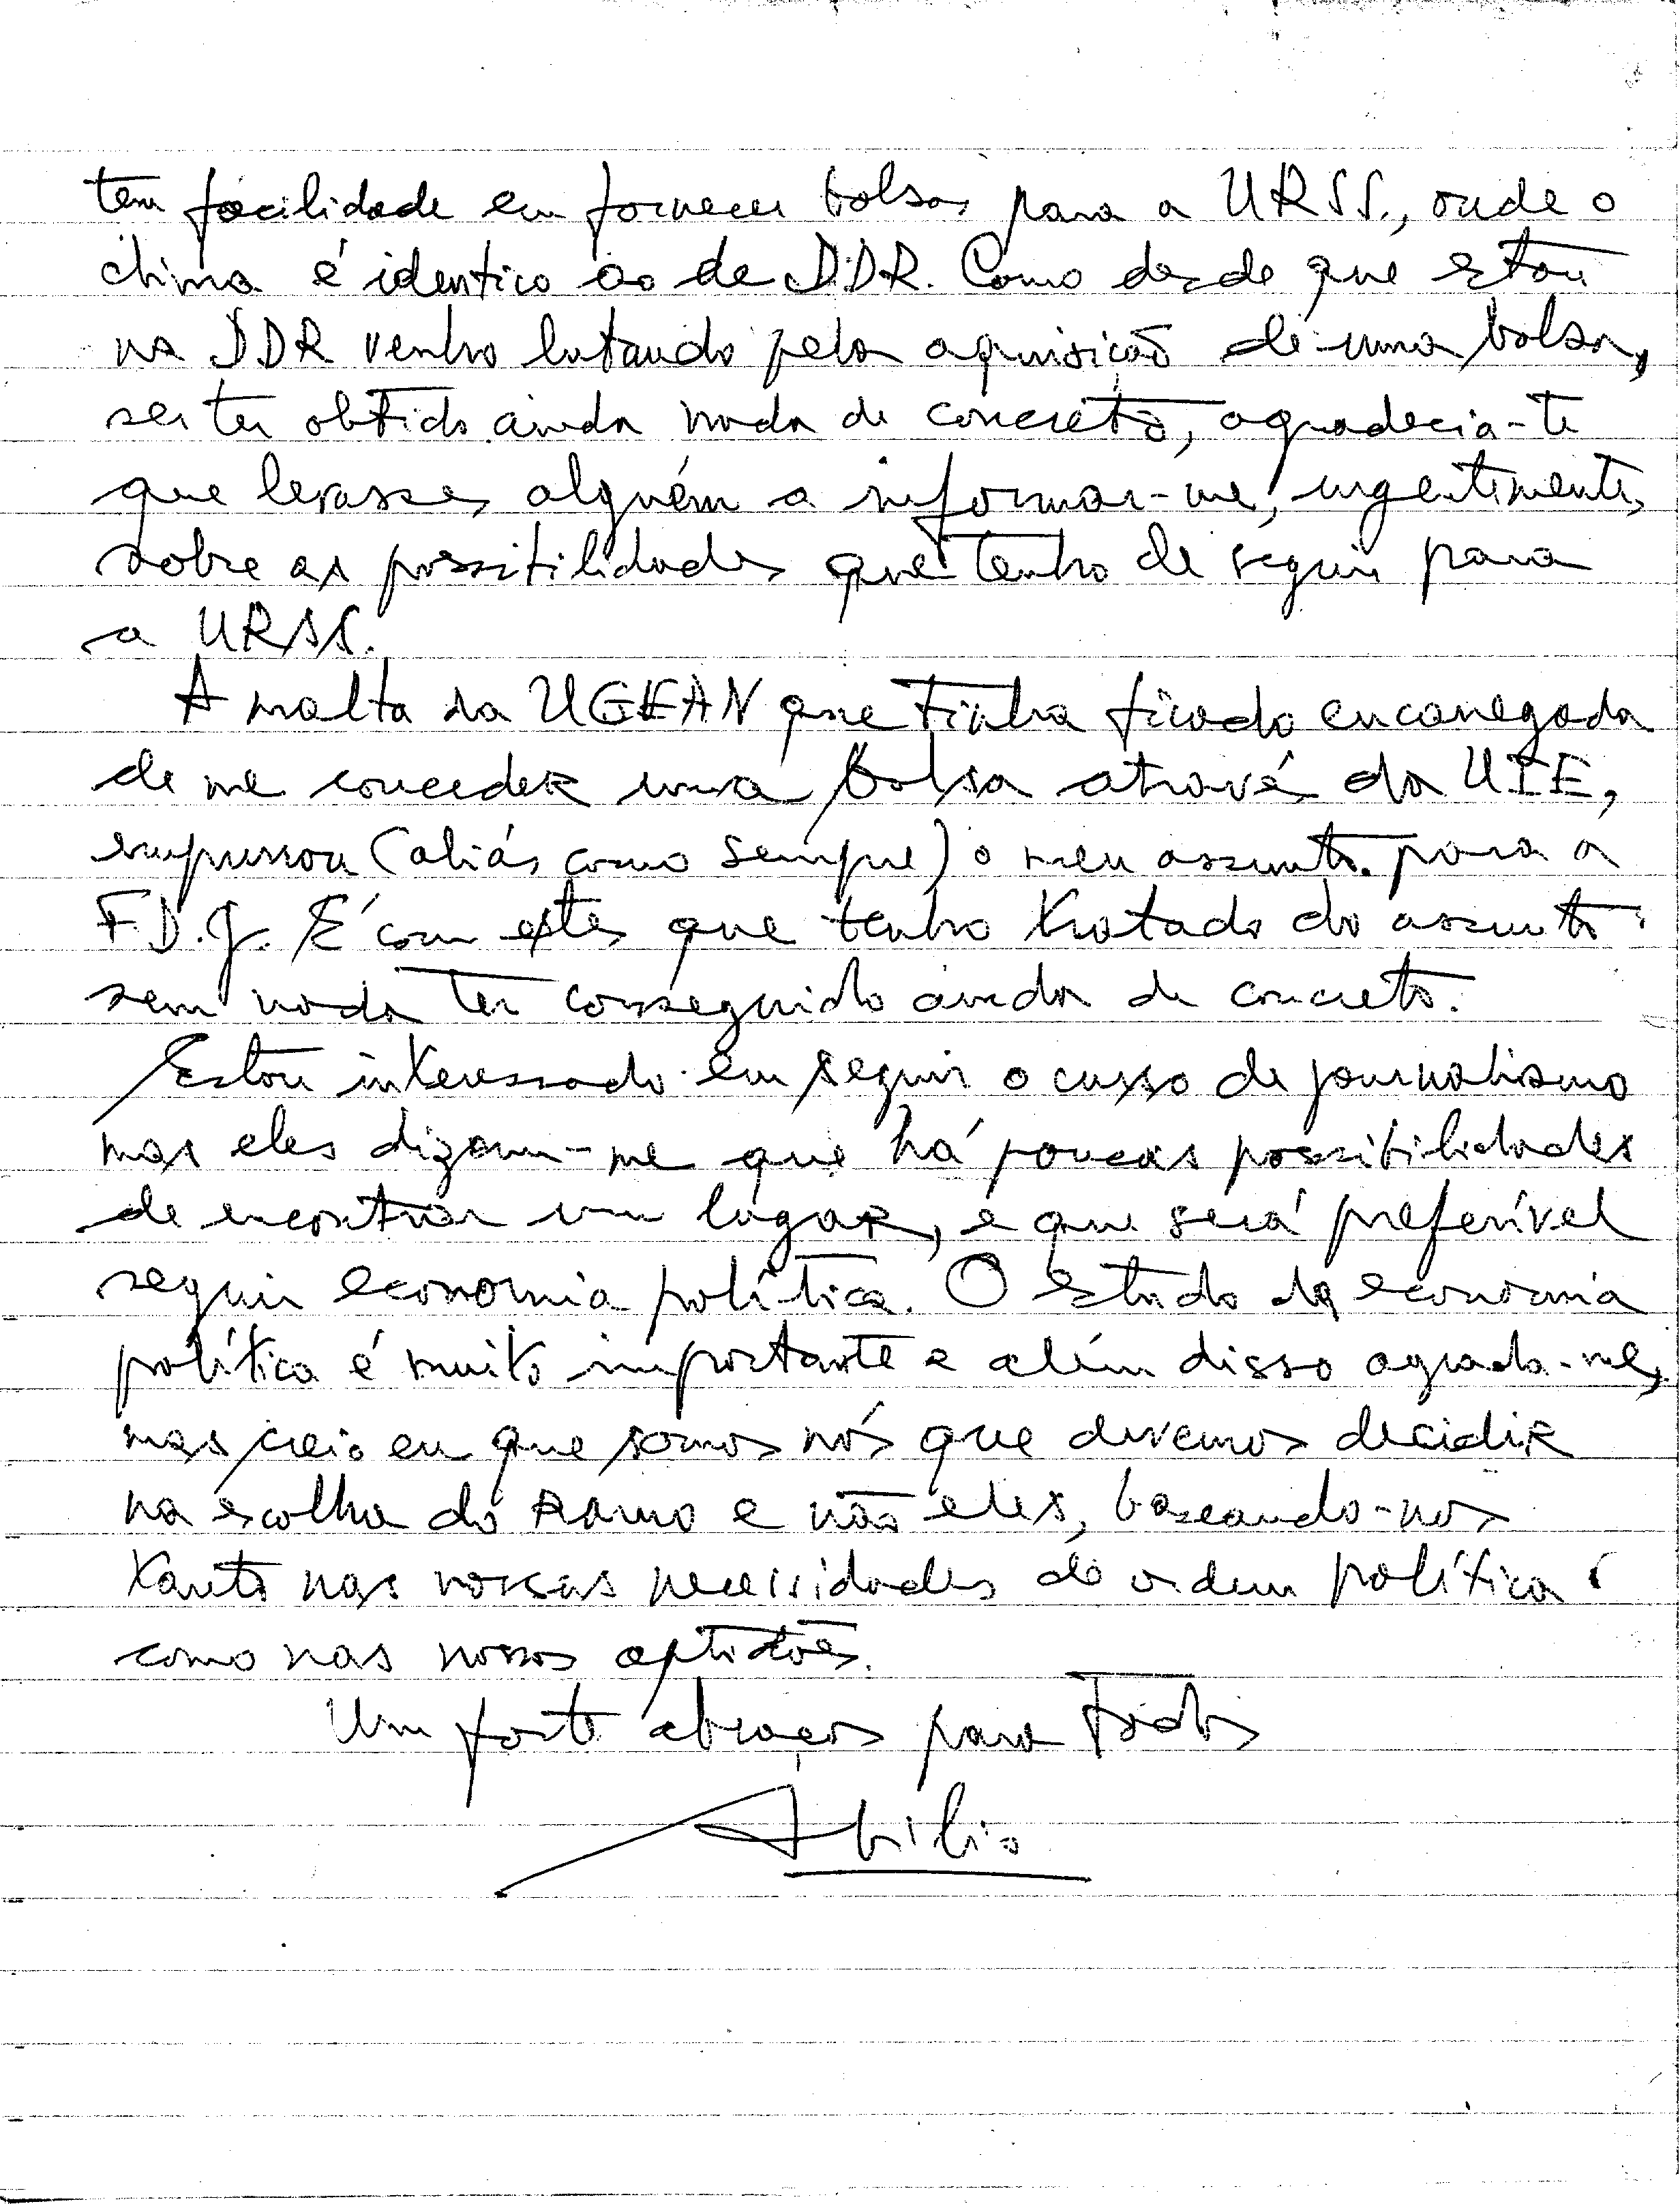 tem facilidade em fornecer bolsas para a URSS., onde o
clima é identico ao de DDR. Como desde que estou
na DDR venho lutando pela aquisição de uma bolsa,
ser ter obtido ainda nada de concreto, agradecia-te
que levasses alguém a informar-me, urgentemente,
sobre as possibilidades que tenho de seguir para
a URSS.
A malta da UGEAN que tinha ficado encarregada
de me conceder uma bolsa através da UIE,
empurrou (aliás como sempre) o meu assunto para a
F.D.J. É com estes que tenho tratado do assunto
sem nada ter conseguido ainda de concreto.
Estou interessado em seguir o curso de journalismo
mas eles dizem-me que há poucas possibilidades
de encontrar um lugar, e que será preferível
seguir economia política. O estudo da economia
política é muito importante e além disso agrada-me,
mas creio eu que somos nós que devemos decidir
na escolha do ramo e não eles, baseando-nos
tanto nas nossas necessidades de ordem política
como nas nossas aptidões.
Um forte abraços para todos
Abílio